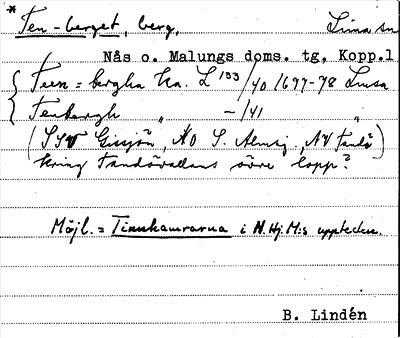 * Ten-berget, berg, Lima sn
Nås o. Malungs doms. tg, Kopp.l
{ Teen=bergha Ka. L 133/40 1677-78 Lusa
Tenbergh " -/41 "
(SSV Gissjön, NO S. Almsj, NV Tandö)
kring Tandövallens övre lopp?
Möjl. = Tinnkamrarna i N.Hj.M:s uppteckn.
B. Lindén